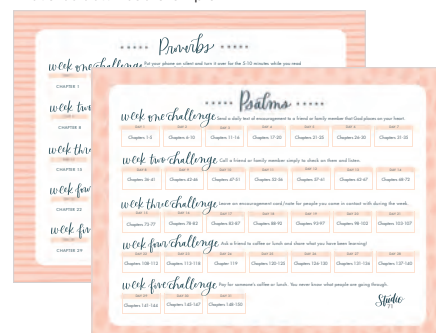 Proverbs
week one challenge Put your phone on silent and turn it over for the 5-10 minutes while you read
CHAPTER 1
week two
CHAPTER 8
week thr
CHAPTER 15
week fou
CHAPTER 22
week fiv
CHAPTER 29
Psalms
week one challenge Send a daily text of encouragement to a friend or family member that God places on your heart.
DAY 1 DAY 2 DAY 3 DAY 4 DAY 5 DAY 6 DAY 7
Chapters 1-5 Chapters 6-10 Chapters 11-16 Chapters 17-20 Chapters 21-25 Chapters 26-30 Chapters 31-35
week two challenge Call a friend or family member simply to check on them and listen.
Chapters 36-41 Chapters 42-46 Chapters 47-51 Chapters 52-56 Chapters 57-61 Chapters 62-67 Chapters 68-72
week three challenge Leave an encouraging card/note for people you come in contact with during the week.
Chapters 73-77 Chapters 78-82 Chapters 83-87 Chapters 88-92 Chapters 93-97 Chapters 98-102 Chapters 103-107
week four challenge Ask a friend to coffee or lunch and share what you have been learning!
Chapters 108-112 Chapters 113-118 Chapter 119 Chapters 120-125 Chapters 126-130 Chapters 131-136 Chapters 137-140
week five challenge Pay for someone's coffee or lunch. You never know what people are going through.
DAY 29 DAY 30 DAY 31
Chapters 141-144 Chapters 145-147 Chapters 148-150
Studio